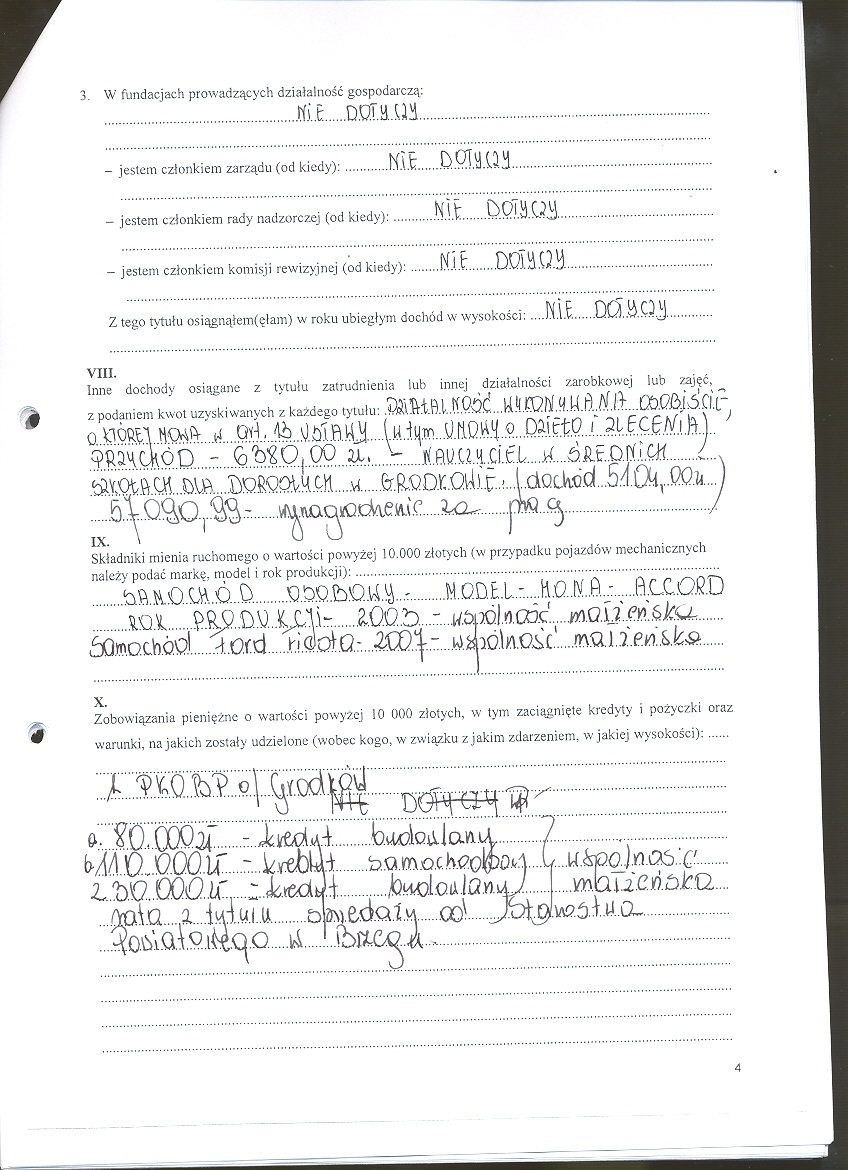 3. W fundacjach prowadzących działalność gospodarczą:
NIE DOTYCZY
– jestem członkiem zarządu (od kiedy): NIE DOTYCZY
– jestem członkiem rady nadzorczej (od kiedy): NIE DOTYCZY
– jestem członkiem komisji rewizyjnej (od kiedy): NIE DOTYCZY
Z tego tytułu osiągnąłem(ęłam) w roku ubiegłym dochód w wysokości: NIE DOTYCZY
VIII.
Inne dochody osiągane z tytułu zatrudnienia lub innej działalności zarobkowej lub zajęć,
z podaniem kwot uzyskiwanych z każdego tytułu: DZIAŁALNOŚĆ WYKONYWANA OSOBIŚCIE,
O KTÓREJ MOWA W art. 13 USTAWY (w tym UMOWY o DZIEŁO i ZLECENIA)
PRZYCHÓD - 6380,00 zł. - NAUCZYCIEL W ŚREDNICH
SZKOŁACH DLA DOROSŁYCH W GRODKOWIE. (dochód 5104,00zł)
57090,99 - wynagrodzenie za pracę
IX.
Składniki mienia ruchomego o wartości powyżej 10.000 złotych (w przypadku pojazdów mechanicznych
należy podać markę, model i rok produkcji):
SAMOCHÓD OSOBOWY - MODEL - HONA - ACCORD
ROK PRODUKCJI - 2003 - wspólność małżeńska
Samochód Ford - 2007 - wspólność małżeńska
X.
Zobowiązania pieniężne o wartości powyżej 10 000 złotych, w tym zaciągnięte kredyty i pożyczki oraz
warunki, na jakich zostały udzielone (wobec kogo, w związku z jakim zdarzeniem, w jakiej wysokości):
1. PKO BP o/ Grodków
NIE DOTYCZY
a. 80.000zł - kredyt budowlany
b. 110.000zł - kredyt samochodowy wspólność
2. 30.000zł - kredyt budowlany małżeńska
rata z tytułu sprzedaży od Starostwa
Powiatowego w Brzegu.
4